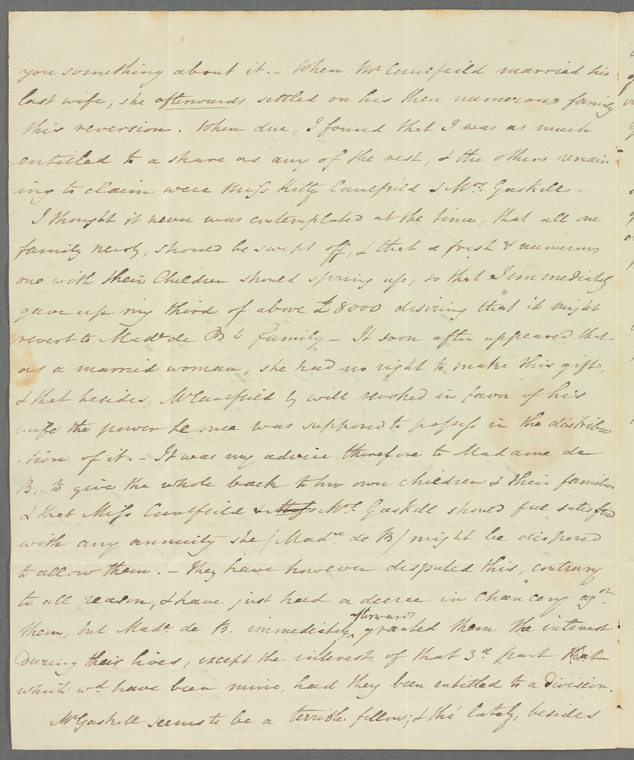 you something about it. – When Mr Caulfeild married his
last wife, she afterwards settled on his then numerous family
this reversion. When due, I found that I was as much
entitled to a share as any of the rest, & the others remain
ing to claim were Miss Kitty Caulfeild & Mrs. Gaskell.
I thought it never was contemplated at the time, that all one
family nearly, should be swept off, & that a fresh & numerous
one with their Children should spring up, so that I immediately
gave up my third of above £8000 desiring that it might
revert to Made. de B's family – It soon after appeared that
as a married woman, she had no right to make this gift,
& that besides, Mr Caulfeild by will revoked in favor of his
wife the power he once was supposed to possess in the distribu
-tion of it. – It was my advice therefore to Madame de
B. to give the whole back to her own children & their families
& that Miss Caulfeild & Mrs. Gaskell should feel satisfied
with any annuity she (Made. de B) might be disposed
to allow them. – They have however disputed this, contrary
to all reason, & have just had a decree in Chancery agst.
them, but Made. de B. immediately afterwards granted them the interest
during their lives, except the interest of that 3d. part that
which wd. have been mine, had they been entitled to a division.
Mr Gaskell seems to be a terrible fellow; & tho' lately, besides